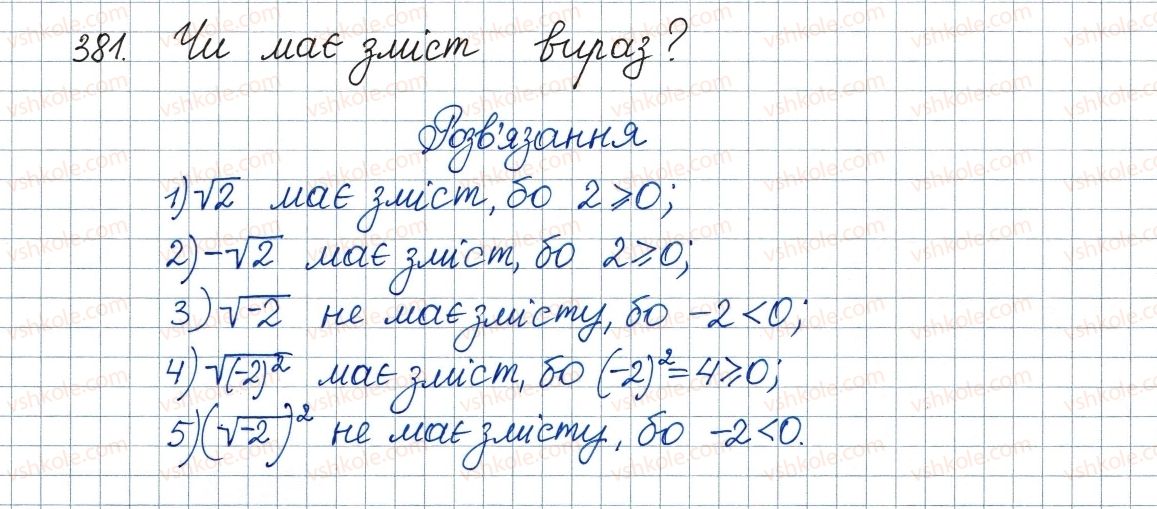 381. Чи має зміст вираз?
Розв'язання
1) √2 має зміст, бо 2 ⩾ 0;
2) -√2 має зміст, бо 2 ⩾ 0;
3) √-2 не має змісту, бо -2 < 0;
4) √(-2)² має зміст, бо (-2)² = 4 ⩾ 0;
5) (√-2)² не має змісту, бо -2 < 0.